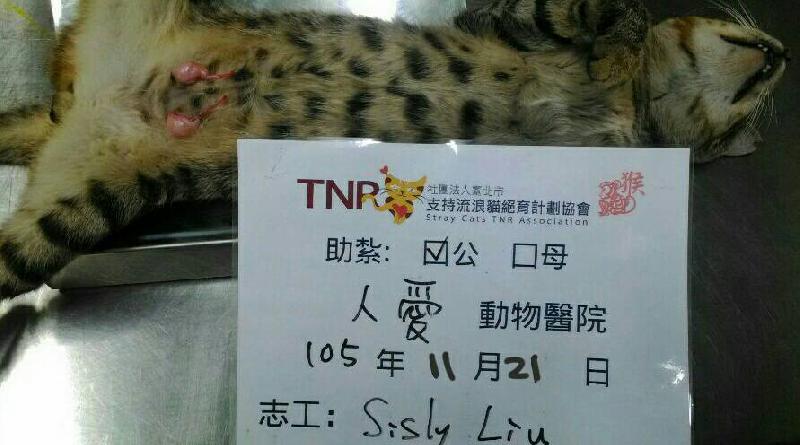 TNR 社團法人臺北市
支持流浪貓絕育計劃協會
Stray Cats TNR Association
猴
助紮: ☑公 □母
人愛 動物醫院
105年 11月21日
志工: Sisly Liu